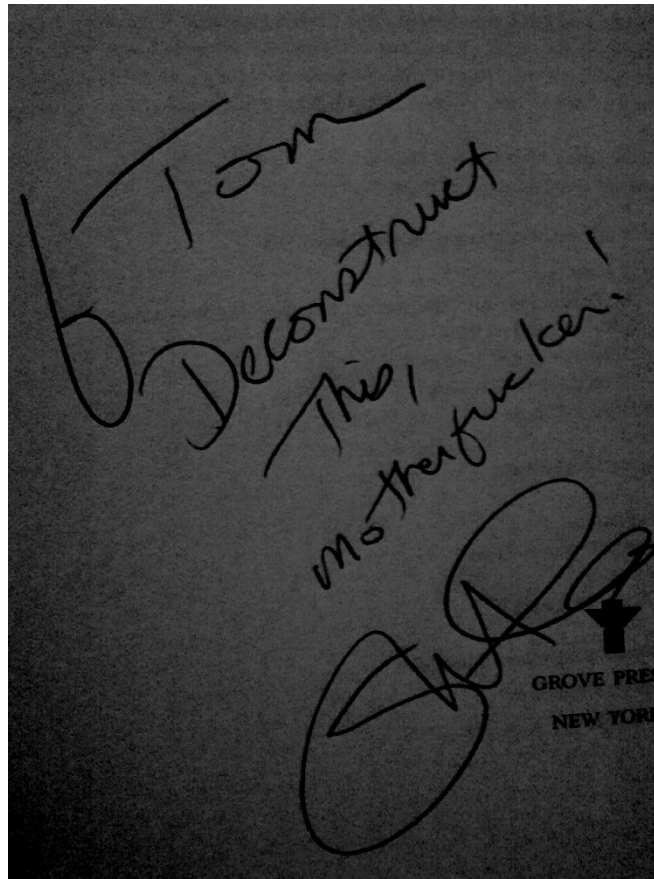 Tom
Deconstruct
This,
motherfucker!
GROVE PRES
NEW YORK